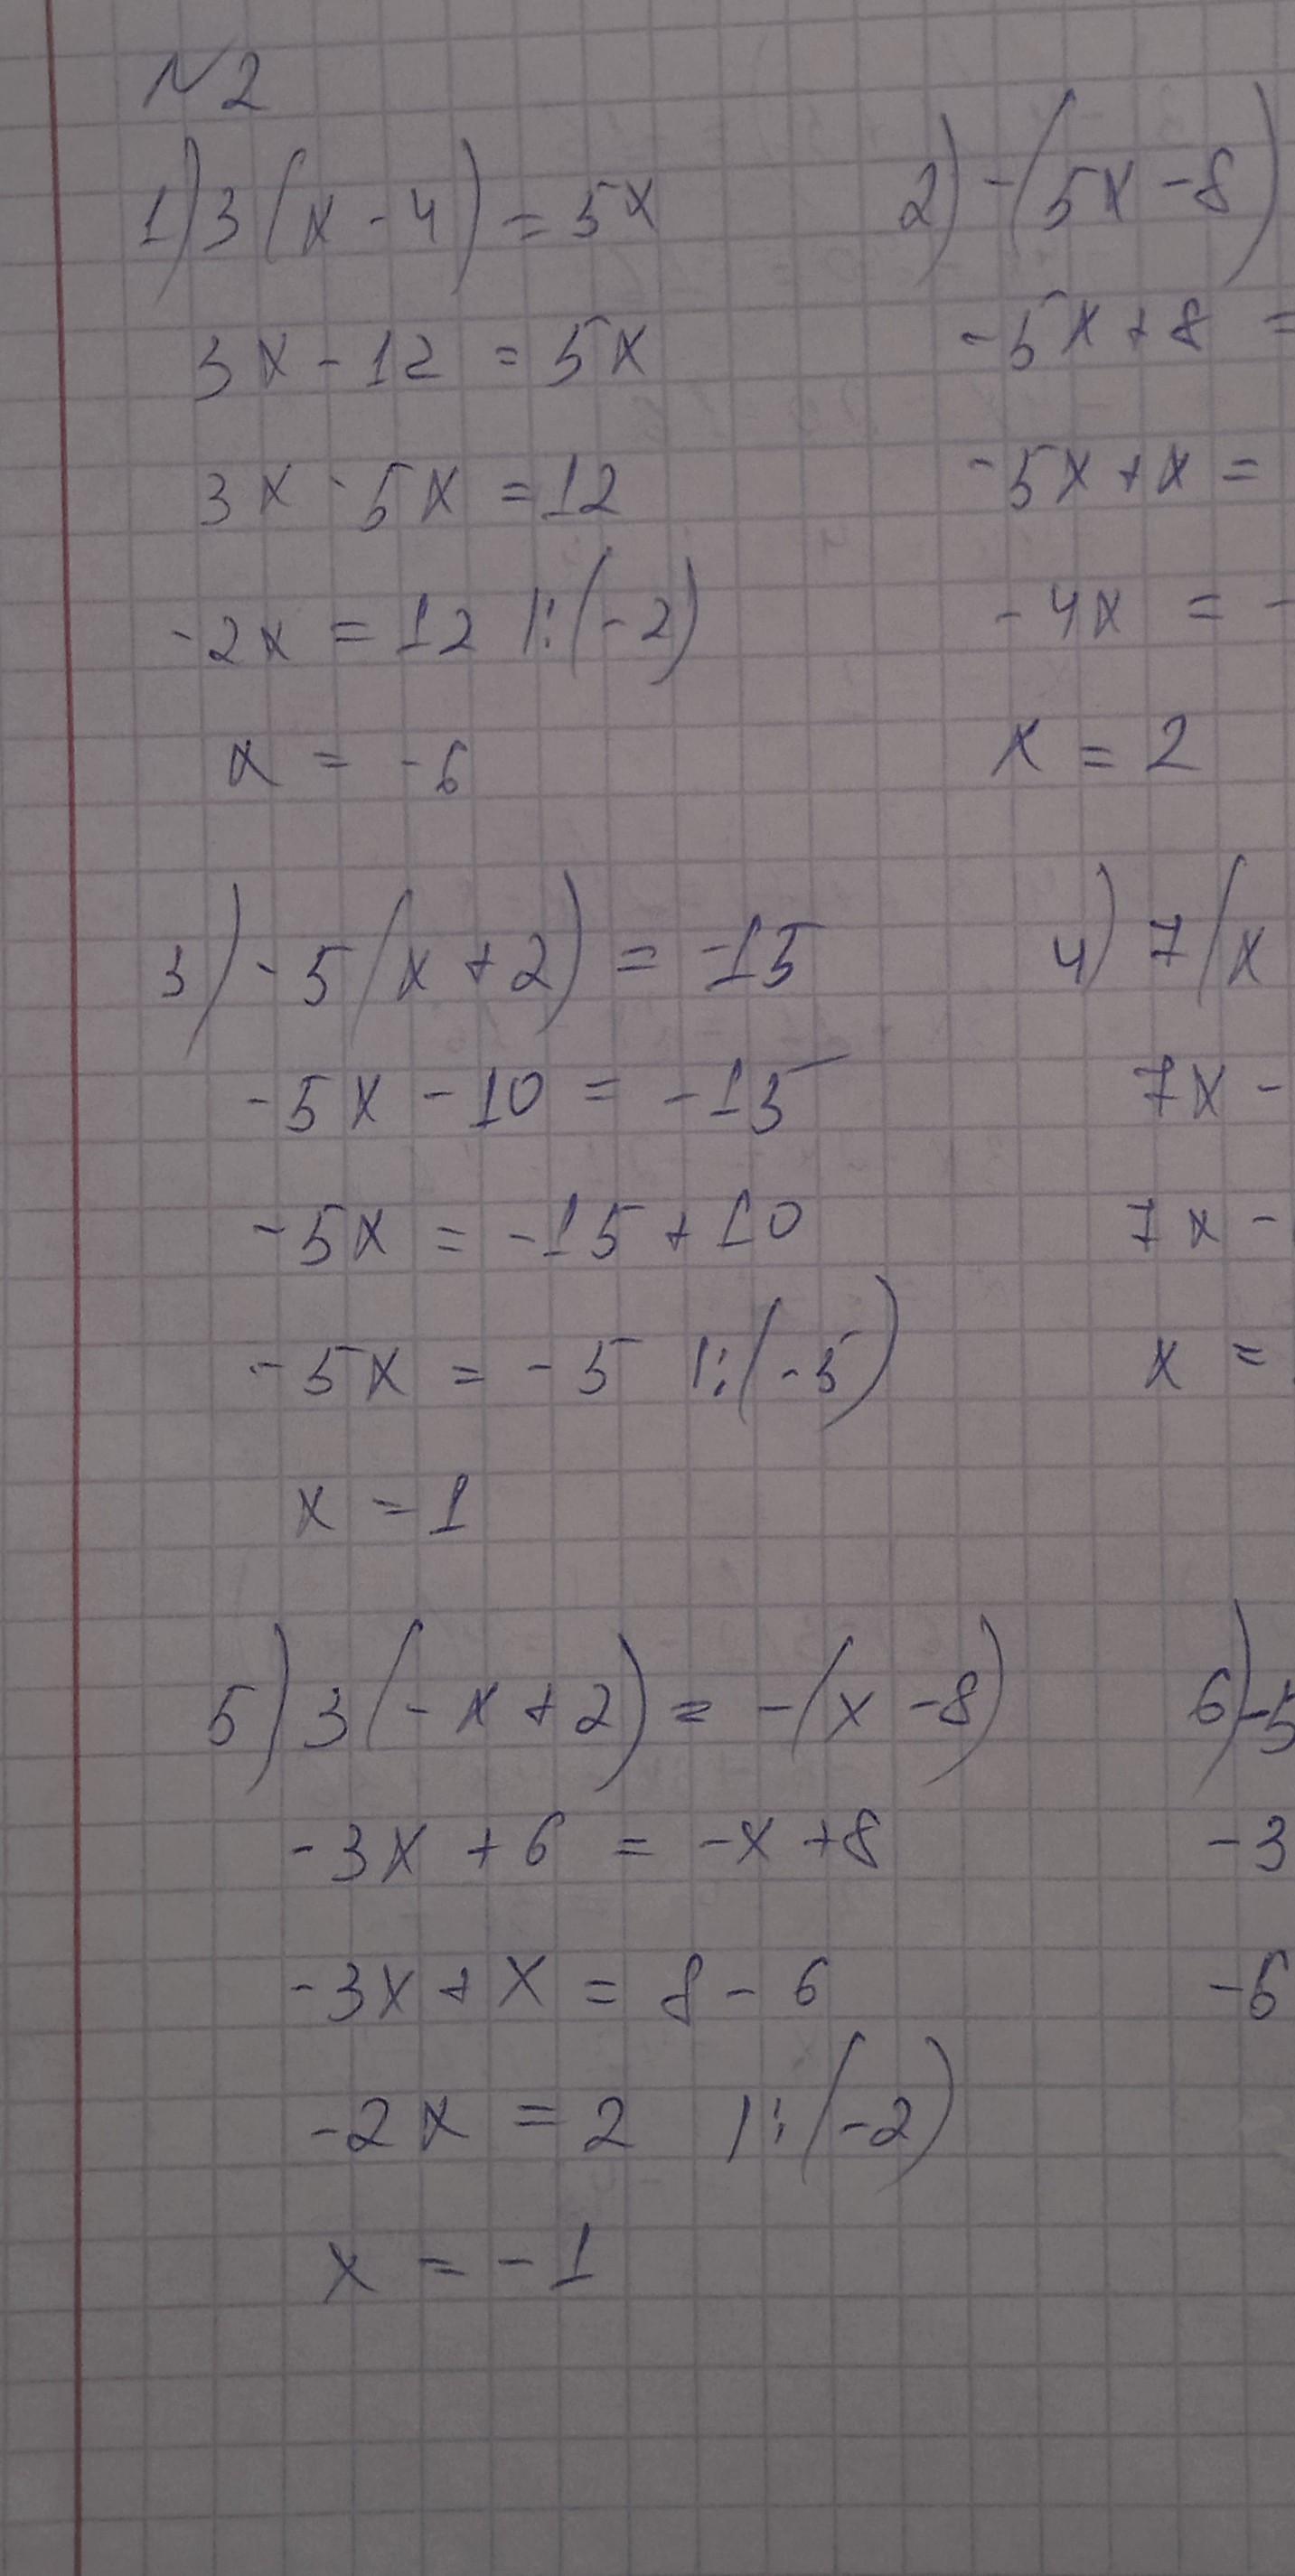 №2
1) 3(x - 4) = 5x
3x - 12 = 5x
3x - 5x = 12
-2x = 12 |:(-2)
x = -6
2) -(5x - 8)
-5x + 8 =
-5x + x =
-4x = -
x = 2
3) -5(x + 2) = -15
-5x - 10 = -15
-5x = -15 + 10
-5x = -5 |:(-5)
x = 1
4) 7(x
7x -
7x -
x =
5) 3(-x + 2) = -(x - 8)
-3x + 6 = -x + 8
-3x + x = 8 - 6
-2x = 2 |:(-2)
x = -1
6) -5
-3
-6